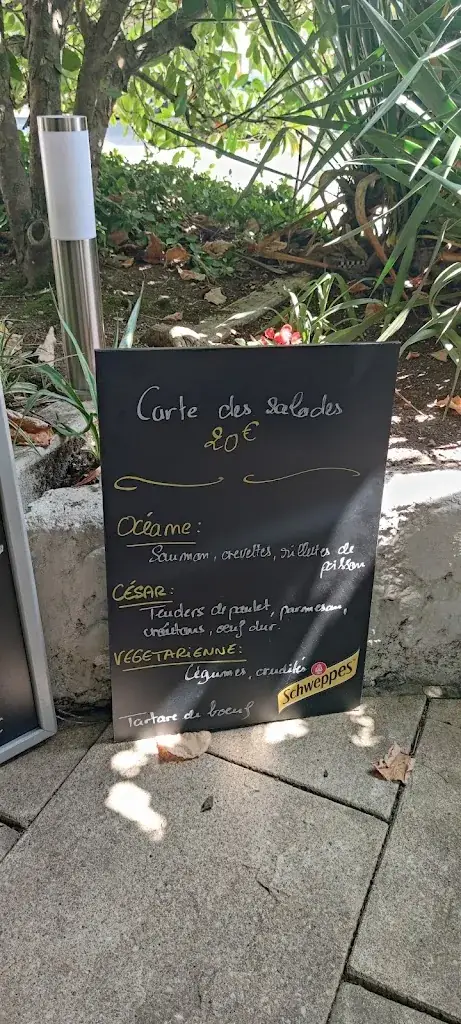 Carte des salades
20€
OCÉANE:
Saumon, crevettes, rillettes de
poisson
CÉSAR:
Tenders de poulet, parmesan,
croûtons, oeuf dur.
VEGETARIENNE:
Légumes, crudités
Schweppes
Tartare de boeuf